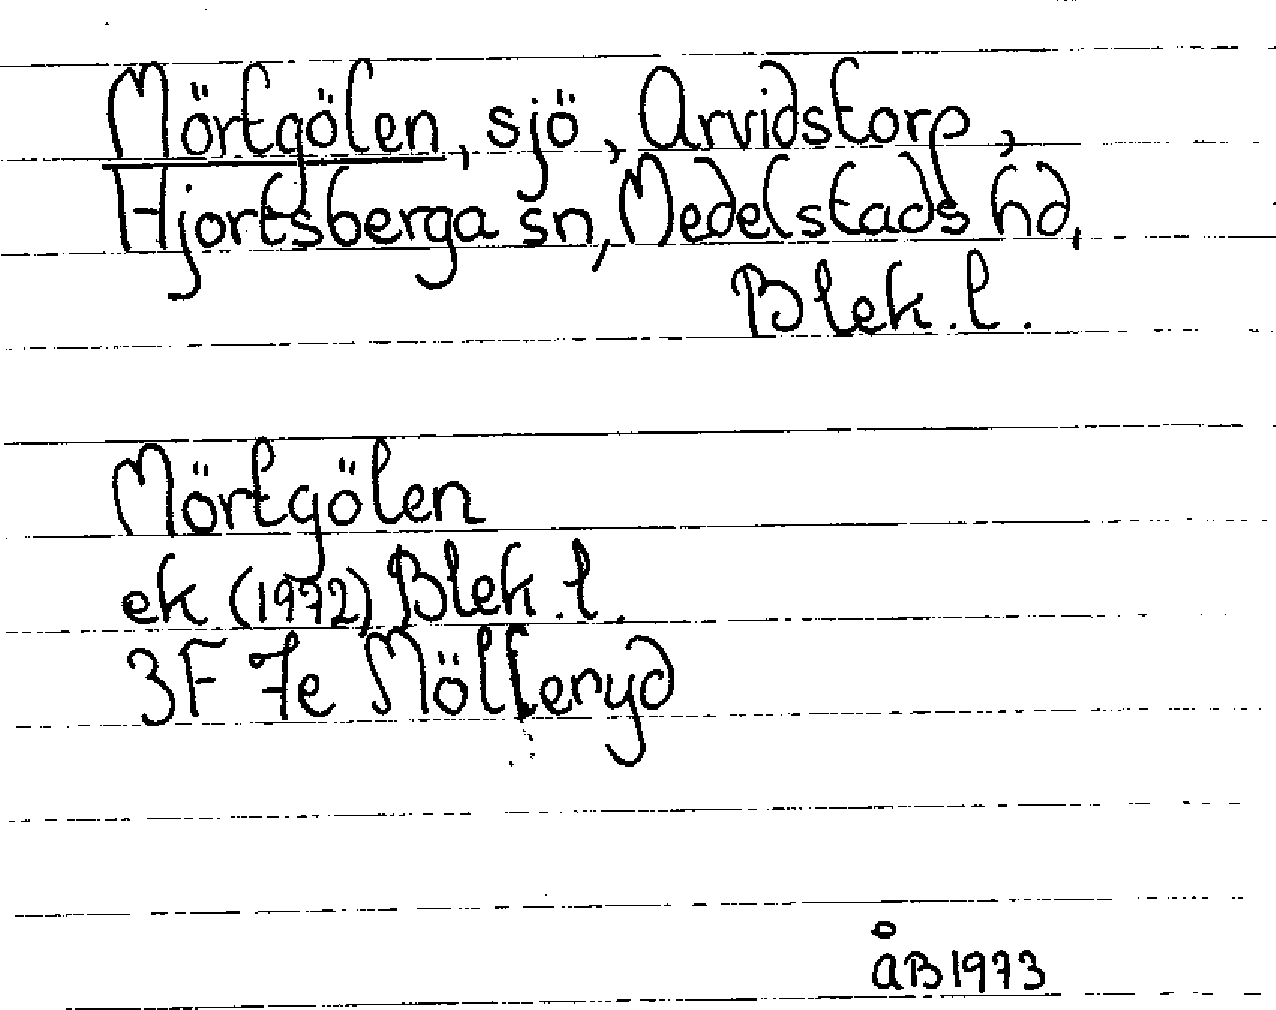 Mörtgölen, sjö, Arvidstorp,
Hjortsberga sn, Medelstads hd,
Blek. l.
Mörtgölen
ek (1972) Blek. l.
3F 7e Möllenryd
åB 1973